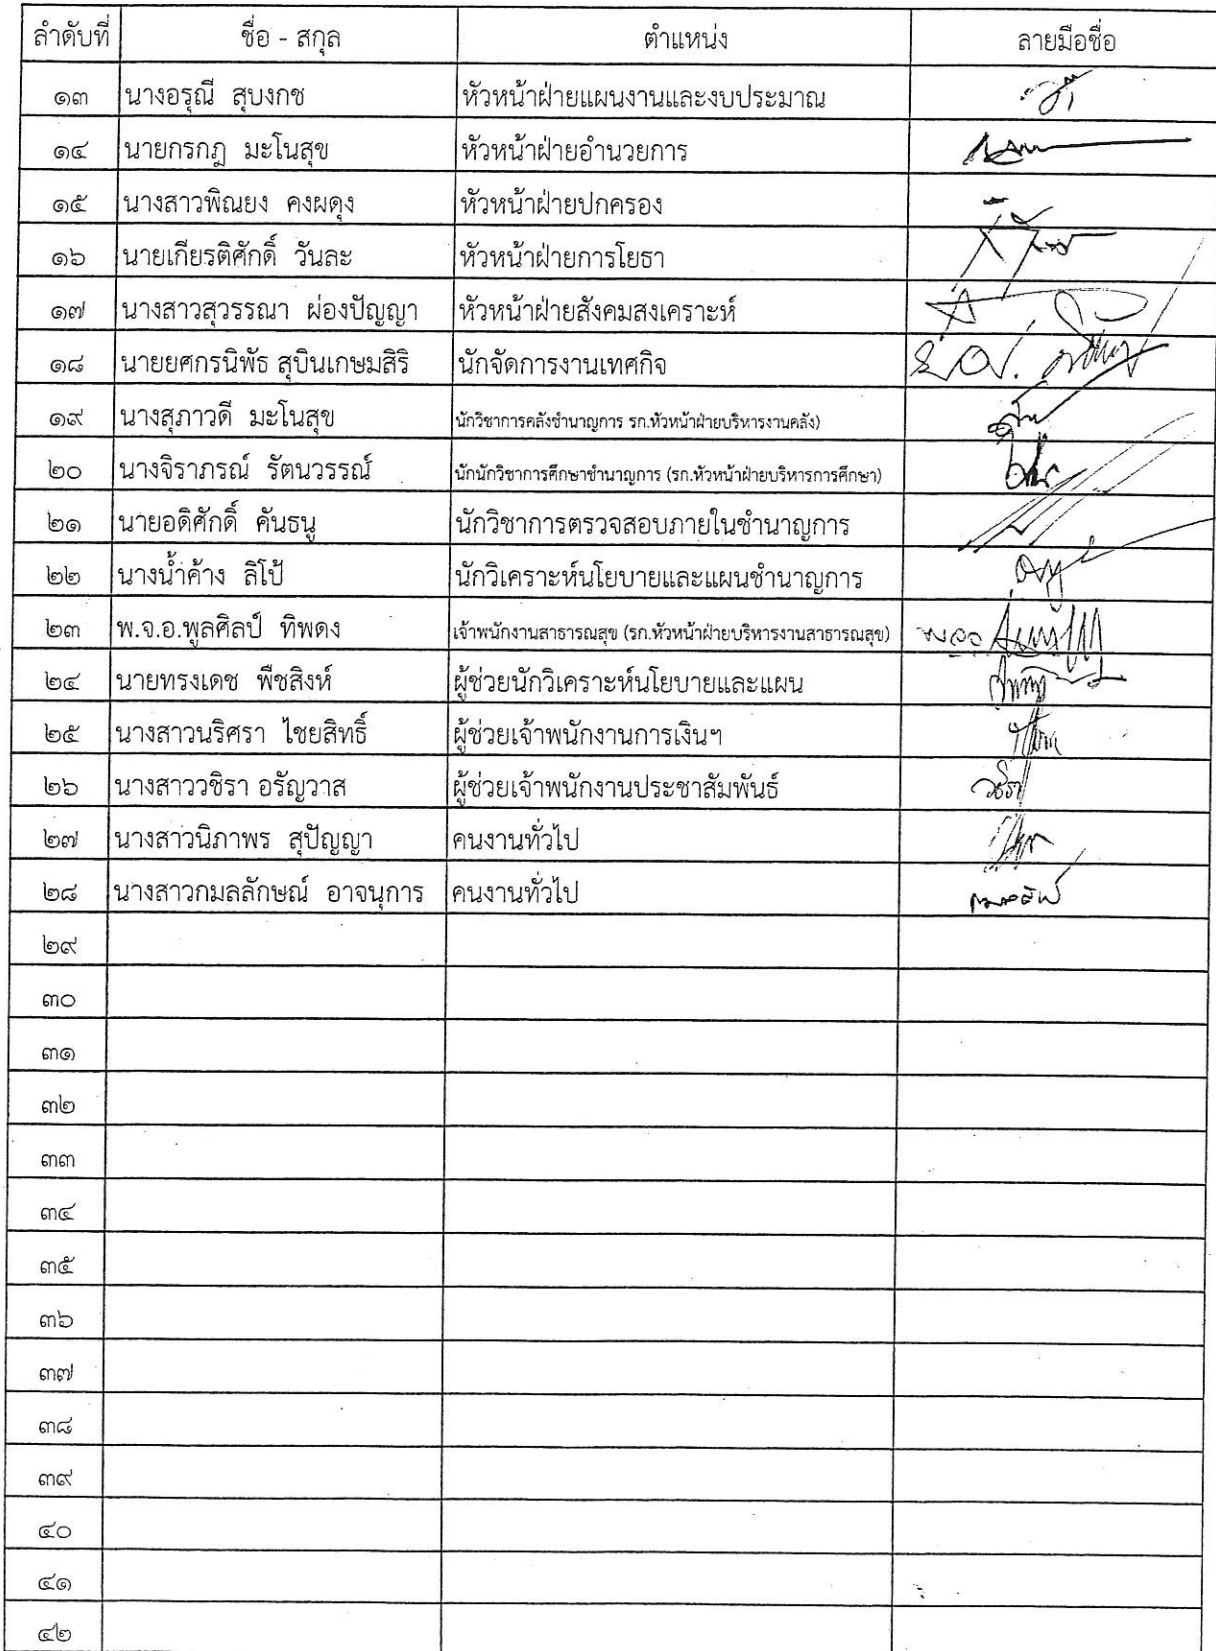 ลำดับที่ ชื่อ - สกุล ตำแหน่ง ลายมือชื่อ
๑๓ นางอรุณี สุบงกช หัวหน้าฝ่ายแผนงานและงบประมาณ
๑๔ นายกรกฎ มะโนสุข หัวหน้าฝ่ายอำนวยการ
๑๕ นางสาวพิณยง คงผดุง หัวหน้าฝ่ายปกครอง
๑๖ นายเกียรติศักดิ์ วันละ หัวหน้าฝ่ายการโยธา
๑๗ นางสาวสุวรรณา ผ่องปัญญา หัวหน้าฝ่ายสังคมสงเคราะห์
๑๘ นายยศกรนิพัธ สุบินเกษมสิริ นักจัดการงานเทศกิจ
๑๙ นางสุภาวดี มะโนสุข นักวิชาการคลังชำนาญการ รก.หัวหน้าฝ่ายบริหารงานคลัง)
๒๐ นางจิราภรณ์ รัตนวรรณ์ นักนักวิชาการศึกษาชำนาญการ (รก.หัวหน้าฝ่ายบริหารการศึกษา)
๒๑ นายอดิศักดิ์ คันธนู นักวิชาการตรวจสอบภายในชำนาญการ
๒๒ นางน้ำค้าง ลิโป้ นักวิเคราะห์นโยบายและแผนชำนาญการ
๒๓ พ.จ.อ.พูลศิลป์ ทิพดง เจ้าพนักงานสาธารณสุข (รก.หัวหน้าฝ่ายบริหารงานสาธารณสุข)
๒๔ นายทรงเดช พืชสิงห์ ผู้ช่วยนักวิเคราะห์นโยบายและแผน
๒๕ นางสาวนริศรา ไชยสิทธิ์ ผู้ช่วยเจ้าพนักงานการเงินฯ
๒๖ นางสาววชิรา อรัญวาส ผู้ช่วยเจ้าพนักงานประชาสัมพันธ์
๒๗ นางสาวนิภาพร สุปัญญา คนงานทั่วไป
๒๘ นางสาวกมลลักษณ์ อาจนุการ คนงานทั่วไป
๒๙
๓๐
๓๑
๓๒
๓๓
๓๔
๓๕
๓๖
๓๗
๓๘
๓๙
๔๐
๔๑
๔๒